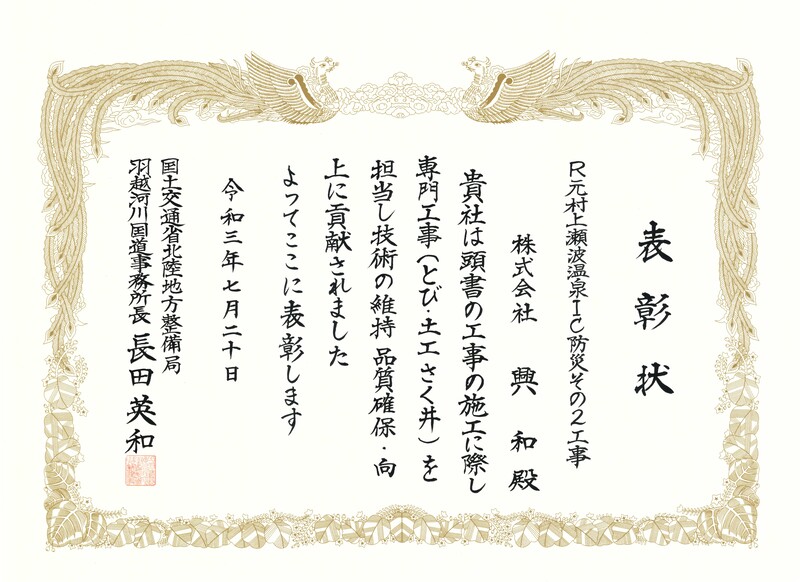 表彰状
R元村上瀬波温泉IC防災その2工事
株式会社 興和殿
貴社は頭書の工事の施工に際し
専門工事(とび・土工さく井)を
担当し技術の維持 品質確保・向
上に貢献されました
よってここに表彰します
令和三年七月二十日
国土交通省北陸地方整備局
羽越河川国道事務所長 長田英和